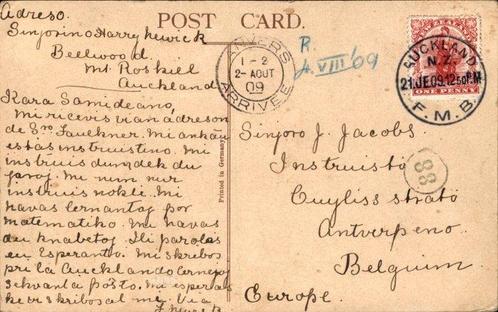 POST CARD.
Adreso.
Sinjorino Harry Kewick
Bellwood
Mt Roskill
Auckland
Kara Samideano,
Mi ricevis vian adreson
de Sro Faulkner. Mi ankaŭ
estas instruistino. Mi
instruis dungdek du
jaroj. Mi nun nur
instruis nokte. Mi
havas lernantoj por
matematiko. Mi havas
du knaboj. Ili parolas
en Esperanto. Mi skribos
pri la Aucklando lernejoj
sekvanta poŝto. Mi esperas
ke vi skribos al mi. Via
Printed in Germany
ANVERS
1-2
2-AOUT
09
ARRIVEE
R.
4.VIII/09
NEW ZEALAND
ONE PENNY
AUCKLAND
N.Z.
21 JE 09. 12 50 P.M
F.M.B.
88
Sinjoro J. Jacobs
Instruisto
Cuyliss strato
Antverpeno
Belgium
Europe